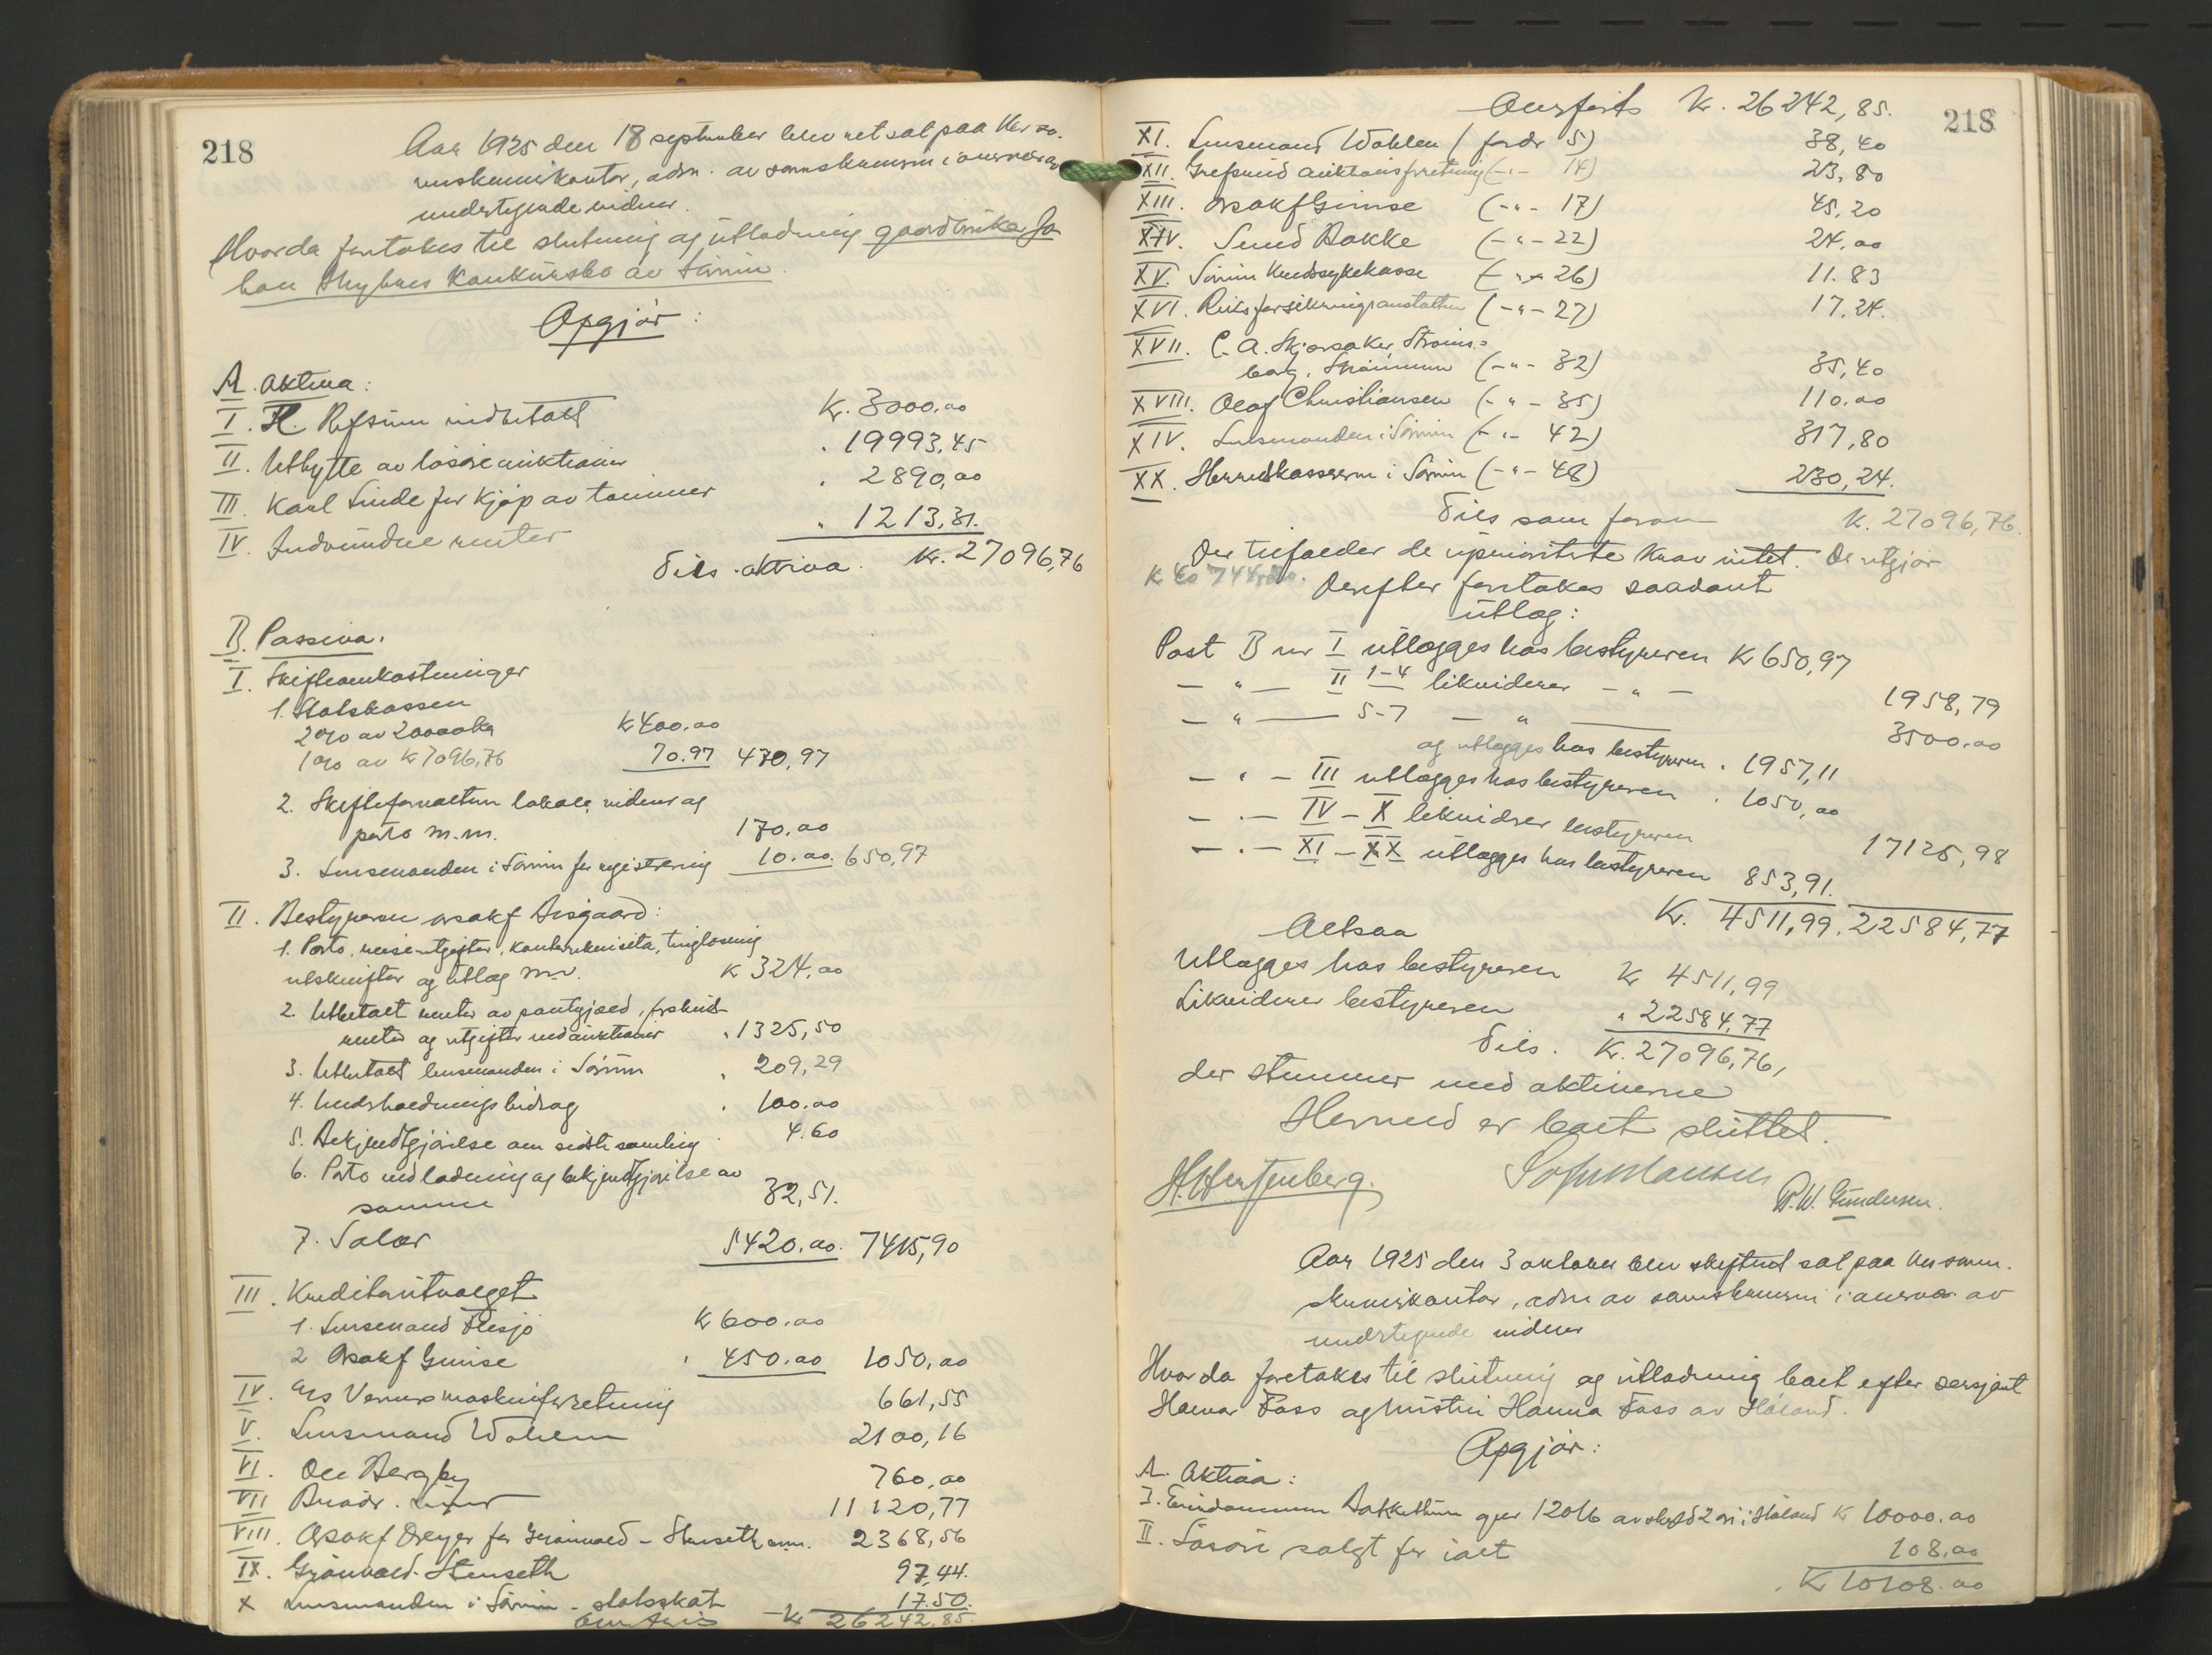 218
Aar 1925 den 18 september blev ret sat paa Nes so-
renskriverkontor, adm. av sorenskriveren i overvær av
undertegnede vidner.
Hvorda foretokes til slutning og utlodning gaardbruker Jo-
han Myhrers konkursbo av Sørum.
Opgjør:
A. Aktiva:
I. H. Refsum indbetalt Kr. 3000.00
II. Utbytte av løsøreauktioner " 19993,45
III. Karl Linde for kjøp av tømmer " 2890,00
IV. Indvundne renter " 1213,31.
Tils. aktiva. Kr. 27096,76
B. Passiva.
I. Skifteomkostninger
1. Statskassen
2% av 20000 kr K 400.00
1% av K 7096,76 70.97 470,97
2. Skifteforvalteren lokale, vidner og
porto m.m. 170.00
3. Lensmanden i Sørum for registrering 10.00. 650,97
II. Bestyreren o.r.sakf Aisgaard:
1. Porto, reiseutgifter, kontorrekvisita, tinglæsning
utskrifter og utlæg m.v. K 324.00
2. Utbetalt renter av pantgjæld, forskuds-
renter og utgifter ved auktioner " 1325,50
3. Utbetalt lensmanden i Sørum " 209,29
4. Underholdningsbidrag " 100.00
5. Bekjendtgjørelse om sidste samling 4.60
6. Porto ved lodning og bekjendtgjørelse av
samme 32,51.
7. Salær 5420.00. 7415,90
III. Kreditorutvalget
1. Lensmand K 600.00
2 Orsakf Gimse " 450.00 1050,00
IV. A/s Verums maskinforretning 661,55
V. Lensmand Wohlen 2100,16
VI. Ole Bergby 760,00
VII Brødr. 11120,77
VIII. Orsakf Dreyer for Grønvold-Stenseth 2368,56
IX. Grønvold-Stenseth 97,44.
X Lensmanden i Sørum - statsskat 17.50.
Overføres Kr 26242,85.
Overført Kr. 26242,85.
218
XI. Lensmand Wohlen (fordr 5) 38,40
XII. Grefsrud auktionsforretning (-"- 14) 23,80
XIII. Orsakf Gimse (-"- 17) 45,20
XIV. Svend Bakke (-"- 22) 24.00
XV. Sørum kredssykekasse (-"- 26) 11.83
XVI. Riksforsikringsanstalten (-"- 27) 17.24.
XVII. C. A. Skjorsaker, Strøms-
berg, Strømmen (-"- 32) 35,40
XVIII. Olaf Christiansen (-"- 35) 110.00
XIV. Lensmanden i Sørum (-"- 42) 317,80
XX. Herredskassereren i Sørum (-"- 48) 230,24.
Tils som foran K. 27096,76.
Der tilfalder de upriorterte krav intet. De utgjør
Derefter foretokes saadant
utlæg:
Post B nr I utlægges hos bestyreren K 650,97
— " — II 1-4 likviderer — " — 1958,79
— " — 5-7 — " — 3500.00
og utlægges hos bestyreren " 1957,11
— " — III utlægges hos bestyreren " 1050,00
— " — IV – X likviderer bestyreren 17125,98
— " — XI – XX utlægges hos bestyreren 853,91.
Kr. 4511,99. 22584,77
Altsaa
Utlægges hos bestyreren K 4511,99
Likviderer bestyreren " 22584,77
Tils. Kr. 27096,76,
der stemmer med aktiverne
Hermed er boet sluttet.
P. W. Gundersen.
Aar 1925 den 3 oktober blev skifteret sat paa Nes soren-
skriverkontor, adm av sorenskriveren i overvær av
undertegnede vidner
Hvorda foretokes til slutning og utlodning boet efter sersjant
Halvor Foss og hustru Hanna Foss av Høland.
Opgjør:
A. Aktiva:
I. Eiendommen gnr 120/6 av skyld 2 øre i Høland K 10000.00
II. Løsøre solgt for ialt 108.00
K 10108.00